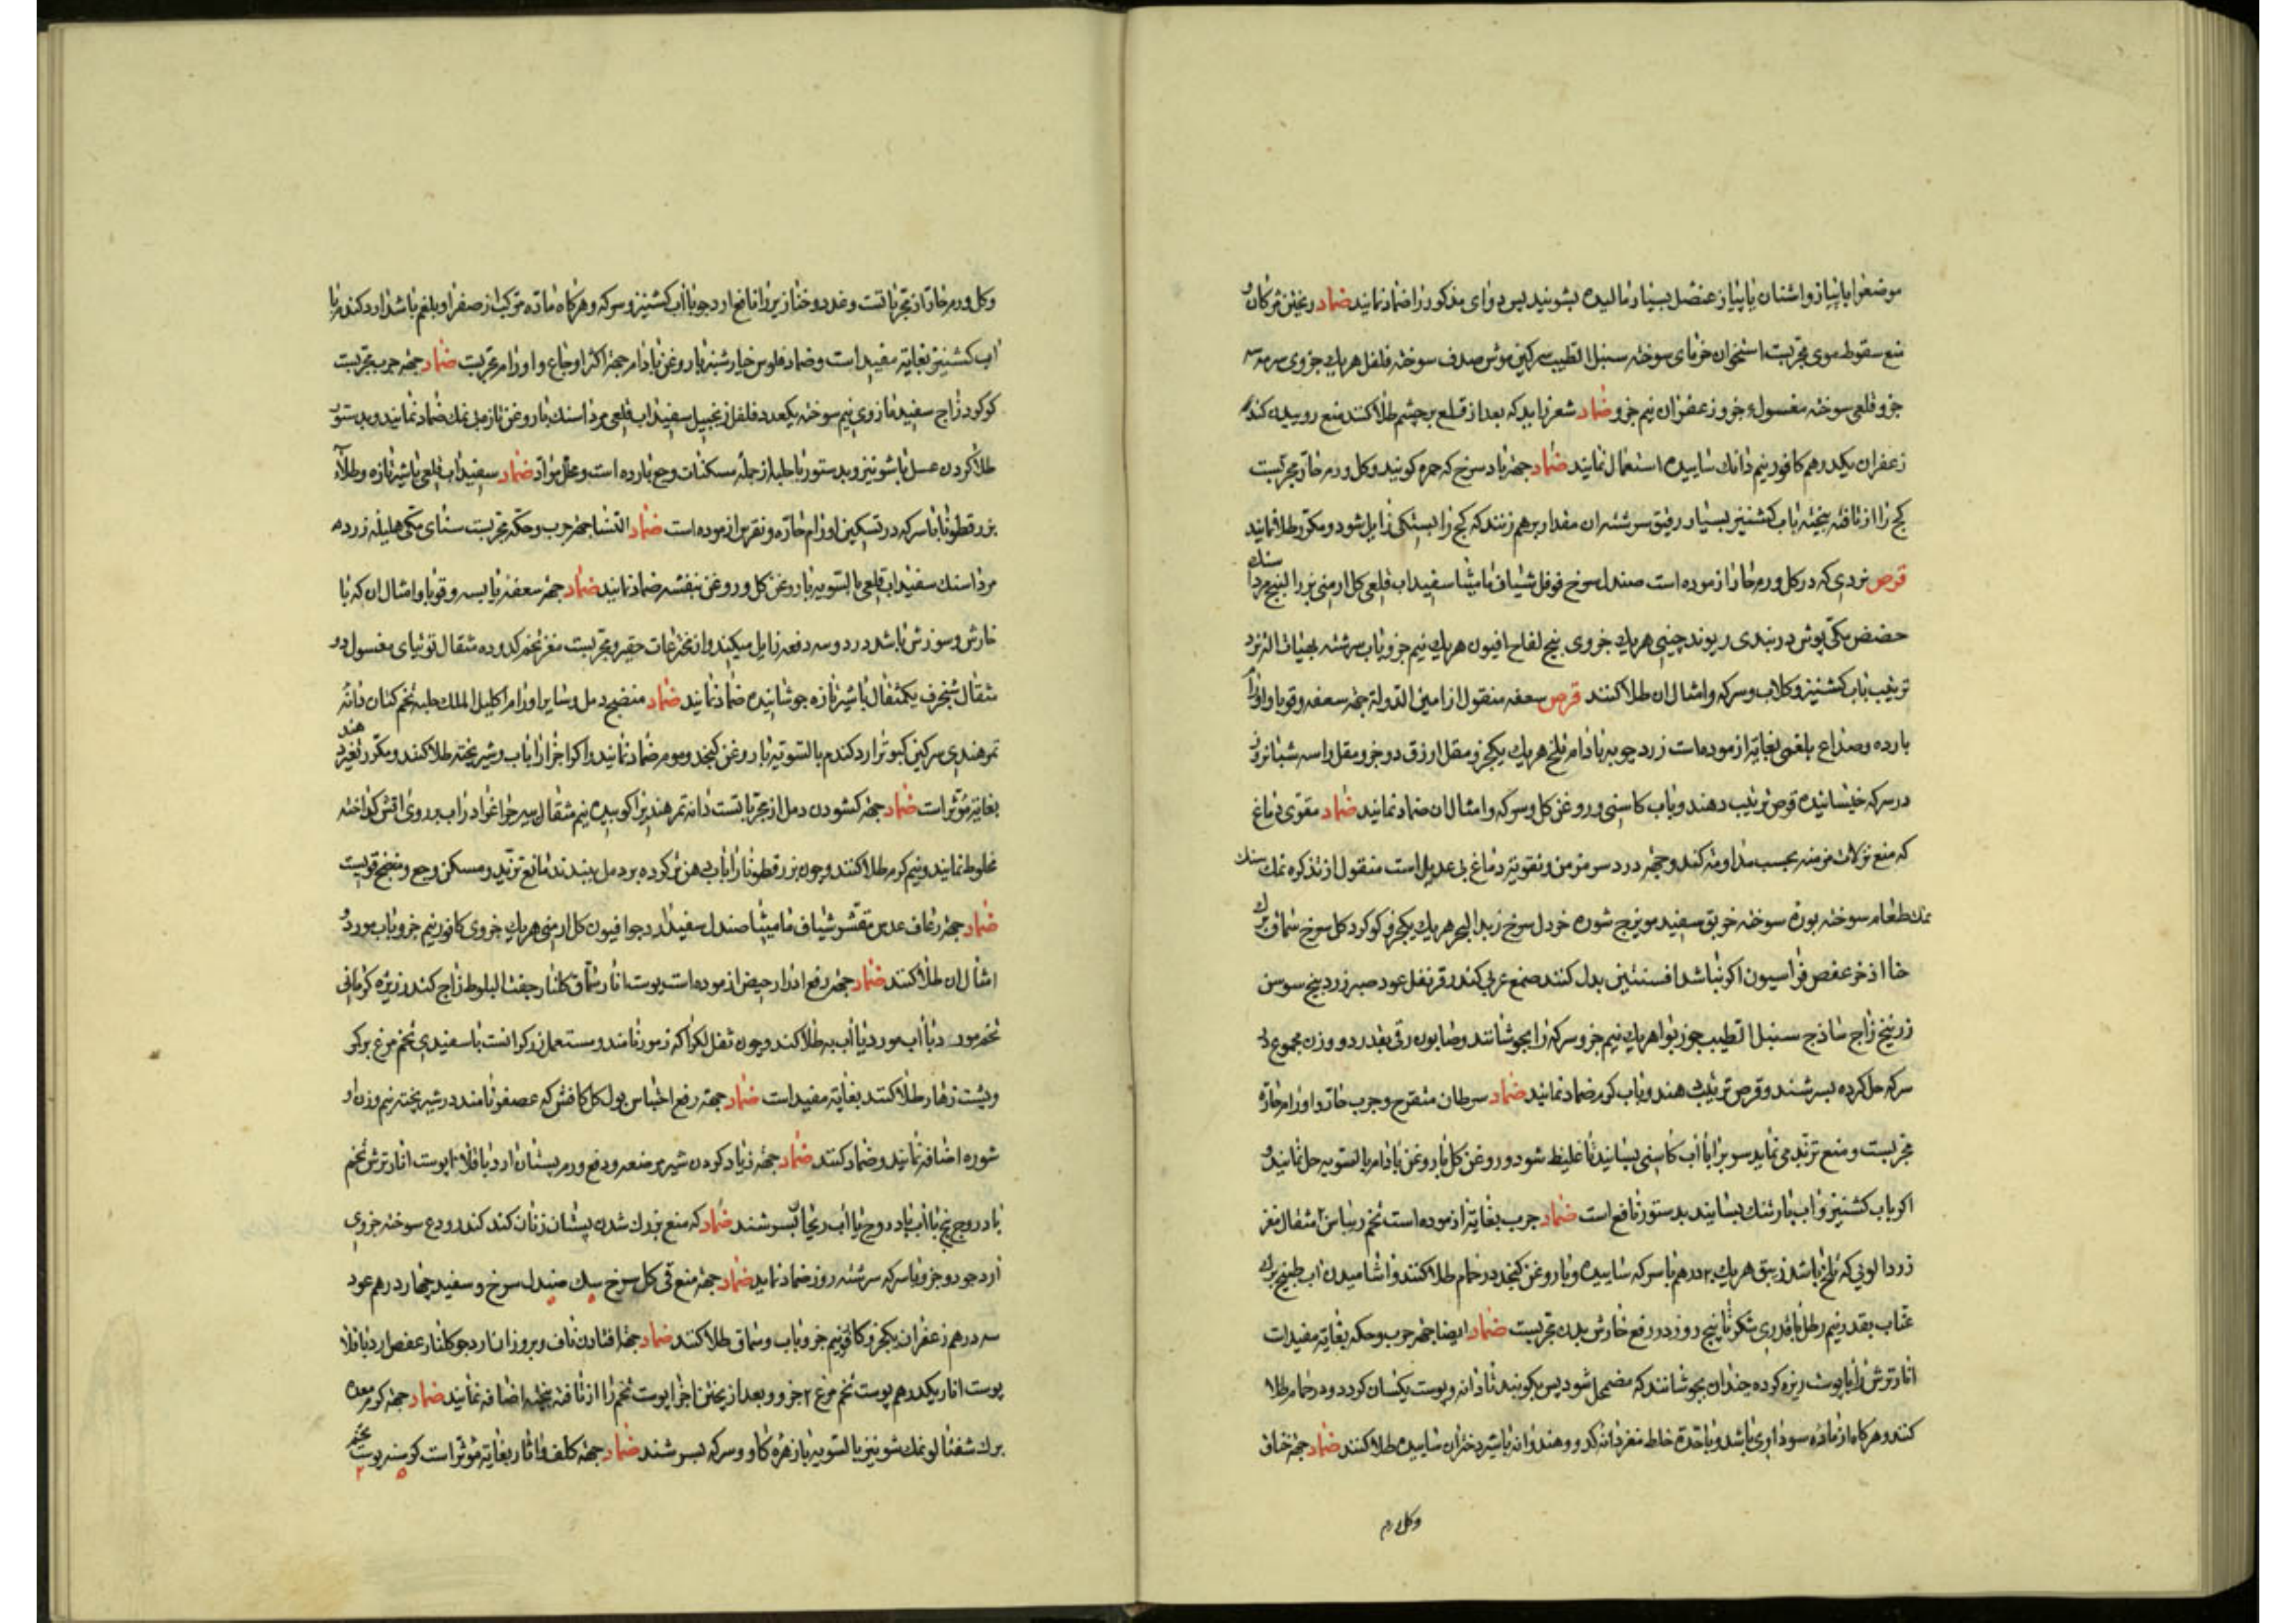 موضعرا با پیاز و اشنان یا پیاز عنصل بسیار مالیده بشویند پس دوای مذکور را ضماد نمایند ضماد ریختن مژکان و
منع سقوط موی مجربست استخوان خرمای سوخته سنبل الطیب سرکین موش صدف سوخته فلفل هریك جزوی سرمه سه
جزو قلعی سوخته مغسول جزو زعفران نیم جزو ضماد شعر زاید که بعد از قلع بر چشم طلا کنند منع روییدن کند
زعفران یکدرهم کافور نیم دانك ساییده استعمال نمایند ضماد جهة باد سرخ که حمره کویند و کل ورم حار مجربست
کچ را از تافته بیخته باب کشنیز بسیار رقیق سرشته ان مقدار برهم زنند که کچ را بستکی زایل شود و مکرر طلا نمایند
قرص نردی که در کل ورم حار ازموده است صندل سرخ فوفل شیاف مامیثا سفیداب قلعی کل ارمنی بزر البنج مرداسنك
حضض مکی پوش دربندی ریوند چینی هریك جزوی بیخ لفاح افیون هریك نیم جزو باب سرشته بهیات النرد
ترتیب باب کشنیز و کلاب و سرکه و امثال ان طلا کنند قرص سعفه منقول از امین الدولة جهة سعفه و قوبا و اورام
بارده و صداع بلغمی بغایة ازموده است زردچوبه بادام تلخ هریك یکجزو مقل ازرق دو جزو مقل را سه شبانروز
در سرکه خیسانیده قرص ترتیب دهند و باب کاسنی و روغن کل و سرکه و امثال ان ضماد نمایند ضماد مقوی دماغ
که منع نزلات مزمنه بحسب مداومة کند و جهة درد سر مزمن و تقویة دماغ بی عدیل است منقول از تذکره نمك سنك
نمك طعام سوخته بوره سوخته خربق سفید مویزج شوره خردل سرخ زبد البحر هریك یکجزو کوکرد کل سرخ سماق برك
حنا اذخر عفص فراسیون اکر نباشد افسنتین بدل کنند صمغ عربی کندر قرنفل عود صبر زرد بیخ سوسن
زرنیخ زاج ساذج سنبل الطیب جوزبوا هریك نیم جزو سرکه را بجوشانند و صابون رقی بقدر دو وزن مجموع در
سرکه حل کرده بسرشند و قرص ترتیب دهند و باب کرم ضماد نمایند ضماد سرطان متقرح و جرب حار و اورام حاره
مجربست و منع تزید می نماید سرب را با اب کاسنی بسایند تا غلیظ شود و روغن کل با روغن بادام بالسویه حل نمایند و
اکر باب کشنیز و اب بارتنك بسایند بدستور نافع است ضماد جرب بغایة ازموده است تخم ریباس ۱۰ مثقال مغز
زردالویی که تلخ باشد زیبق هریك ۲ درهم با سرکه ساییده و با روغن کنجد در حمام طلا کنند و اشامیدن اب طبیخ برك
عناب بقدر نیم رطل با قدری شکر تا پنج روز در رفع خارش بدن مجربست ضماد ایضا جهة جرب و حکه بغایة مفیدست
انار ترش را با پوست ریزه کرده چندان بجوشانند که مضمحل شود پس بکوبند تا دانه و پوست یکسان کردد و در حمام طلا
کنند و هرکاه از ماده سوداوی باشد و یا حدة خلط مغز دانه کدو و هندوانه با شیر دختران ساییده طلا کنند ضماد جهة خناق
وکل ورم
وکل ورم حار از مجرباتست و غدد و خنازیر را نافع ارد جو با اب کشنیز و سرکه و هرکاه ماده مرکب از صفرا و بلغم باشد ارد کندم با
اب کشنیز بغایة مفید است و ضماد فلوس خیارشنبر با روغن بادام جهة اکثر اوجاع و اورام مجربست ضماد جهة جرب مجربست
کوکرد زاج سفید مازوی نیم سوخته یکعدد فلفل زنجبیل سفیداب قلعی مرداسنك با روغن تازه بی نمك ضماد نمایند و بدستور
طلا کردن عسل با شونیز و بدستور با حلبه از جمله مسکنات وجع بارده است و محلل مواد ضماد سفیداب قلعی با شیر تازه و طلاء
بزر قطونا با سرکه در تسکین اورام حاره و نقرس ازموده است ضماد النسا جهة جرب و حکه مجربست سنای مکی هلیله زرده
مرداسنك سفیداب قلعی بالسویه با روغن کل و روغن بنفشه ضماد نمایند ضماد جهة سعفه یابسه و قوبا و امثال ان که با
خارش و سوزش باشد در دو سه دفعه زایل میکند و از مخترعات حقیر و مجربست مغز تخم کدو ده مثقال توتیای مغسول دو
مثقال شنجرف یکمثقال با شیر تازه جوشانیده ضماد نمایند ضماد منضج دمل و سایر اورام اکلیل الملك حلبه تخم کتان دانه
تمر هندی سرکین کبوتر ارد کندم بالسویه با روغن کنجد و موم ضماد نمایند و اکر اجزا را باب و شیر پخته طلا کنند و مکرر تغیر دهند
بغایة مؤثر است ضماد جهة کشودن دمل از مجرباتست دانه تمر هندی را کوبیده نیم مثقال سیر خوا غوا در اب بر روی اتش کداخته
مخلوط نمایند و نیم کرم طلا کنند و چون بزر قطونا را باب دهن تر کرده بر دمل ببندند مانع تزید و مسکن وجع و منضج قویست
ضماد جهة رعاف عدس مقشر شیاف مامیثا صندل سفید ارد جو افیون کل ارمنی هریك جزوی کافور نیم جزو باب مورد و
امثال ان طلا کنند ضماد جهة رفع ادرار حیض ازموده است پوست انار سماق کلنار جفت البلوط زاج کندر زیره کرمانی
تخم مورد با اب مورد یا اب به طلا کنند و چون ثفل لکرا که زمور نامند و مستعمل زرکرانست با سفیدی تخم مرغ بر کمر
و پشت زهار طلا کنند بغایة مفید است ضماد جهة رفع احتباس بول کل کافشه که عصفر نامند در شیر پخته نیم وزن او
شوره اضافه نمایند و ضماد کنند ضماد جهة زیاد کردن شیر مرضعه و دفع ورم پستان ارد باقلا ۱۰ پوست انار ترش تخم
بادروج پنج با اب بادروج یا اب ریحان بسرشند ضماد که منع بزرك شدن پستان زنان کند کندر ودع سوخته جزوی
ارد جو دو جزو با سرکه سرشته روز ضماد نماید ضماد جهة منع قی کل سرخ سك صندل سرخ و سفید چهار درهم عود
سه درهم زعفران یکجزو کافور نیم جزو باب و سماق طلا کنند ضماد جهة افتادن ناف و بروز ان ارد جو کلنار عفص ارد باقلا
پوست انار یکدرهم پوست تخم مرغ ۲ جزو و بعد از پختن اجزا پوست تخم را از تافته بیخته اضافه نمایند ضماد جهة کرم معده
برك شفتالو نمك شونیز بالسویه با زهره کاو و سرکه بسرشند ضماد جهة کلف و اثار بغایة مؤثر است کرسنه پوست تخم